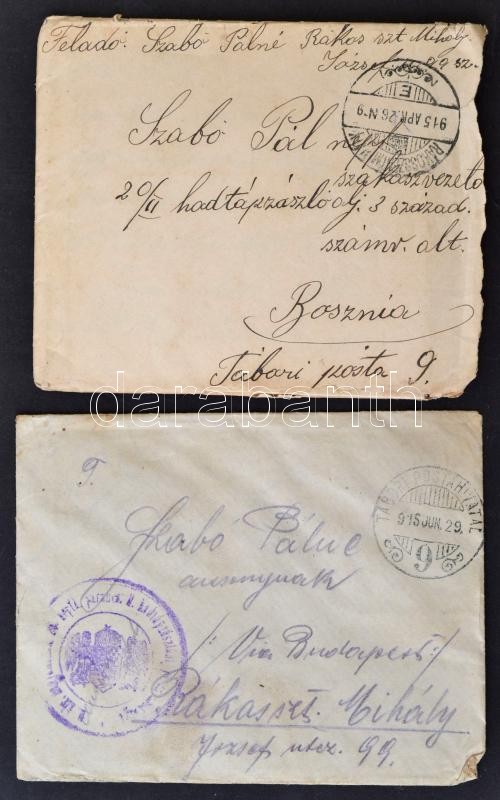 Feladó: Szabó Pálné Rákos szt Mihály
József u. 99 sz.
915 APR. 26. N 9
E
Szabó Pál
szakaszvezető
20/II hadtápzászlóalj. 3 század.
számv. alt.
Bosznia
Tábori posta 9.
darabanth
TÁBORI POSTAHIVATAL
915 JUN. 29.
9
T.
Szabó Pálné
asszonynak
/: Via Budapest :/
Rákosszt. Mihály
József utcz. 99.